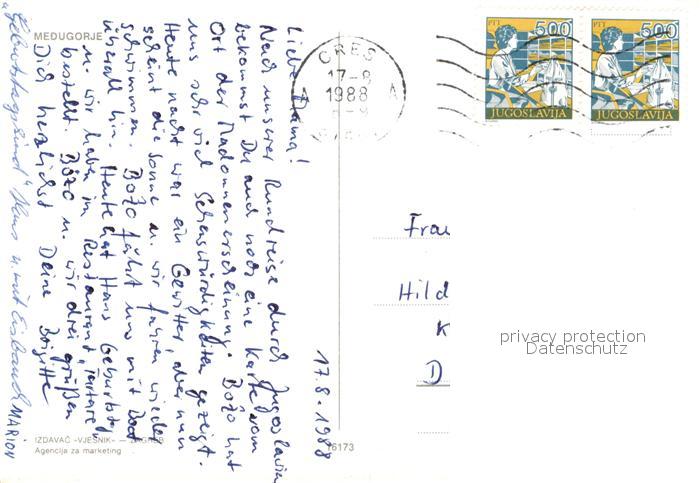 MEDUGORJE
17.8.1988
Liebe Mama!
Nach unserer Rundreise durch Jugoslavien
bekommst Du auch noch eine Karte vom
Ort der Madonnenerscheinung. Božo hat
uns sehr viel Sehenswürdigkeiten gezeigt.
Heute nacht war ein Gewitter, aber nun
scheint die Sonne u. wir fahren wieder
schwimmen. Božo fährt uns mit Boot
überall hin. Heute hat Hans Geburtstag
u. wir haben im Restaurant
bestellt. Božo u. wir drei grüßen
Dich herzlichst Deine Brigitte
"Geburtstagskind" Hans u. mit MARION
IZDAVAČ «VJESNIK» — ZAGREB
Agencija za marketing
16173
CRES
17-8
1988
A
PTT 500
JUGOSLAVIJA
PTT 500
JUGOSLAVIJA
Frau
Hild
K
D
privacy protection
Datenschutz